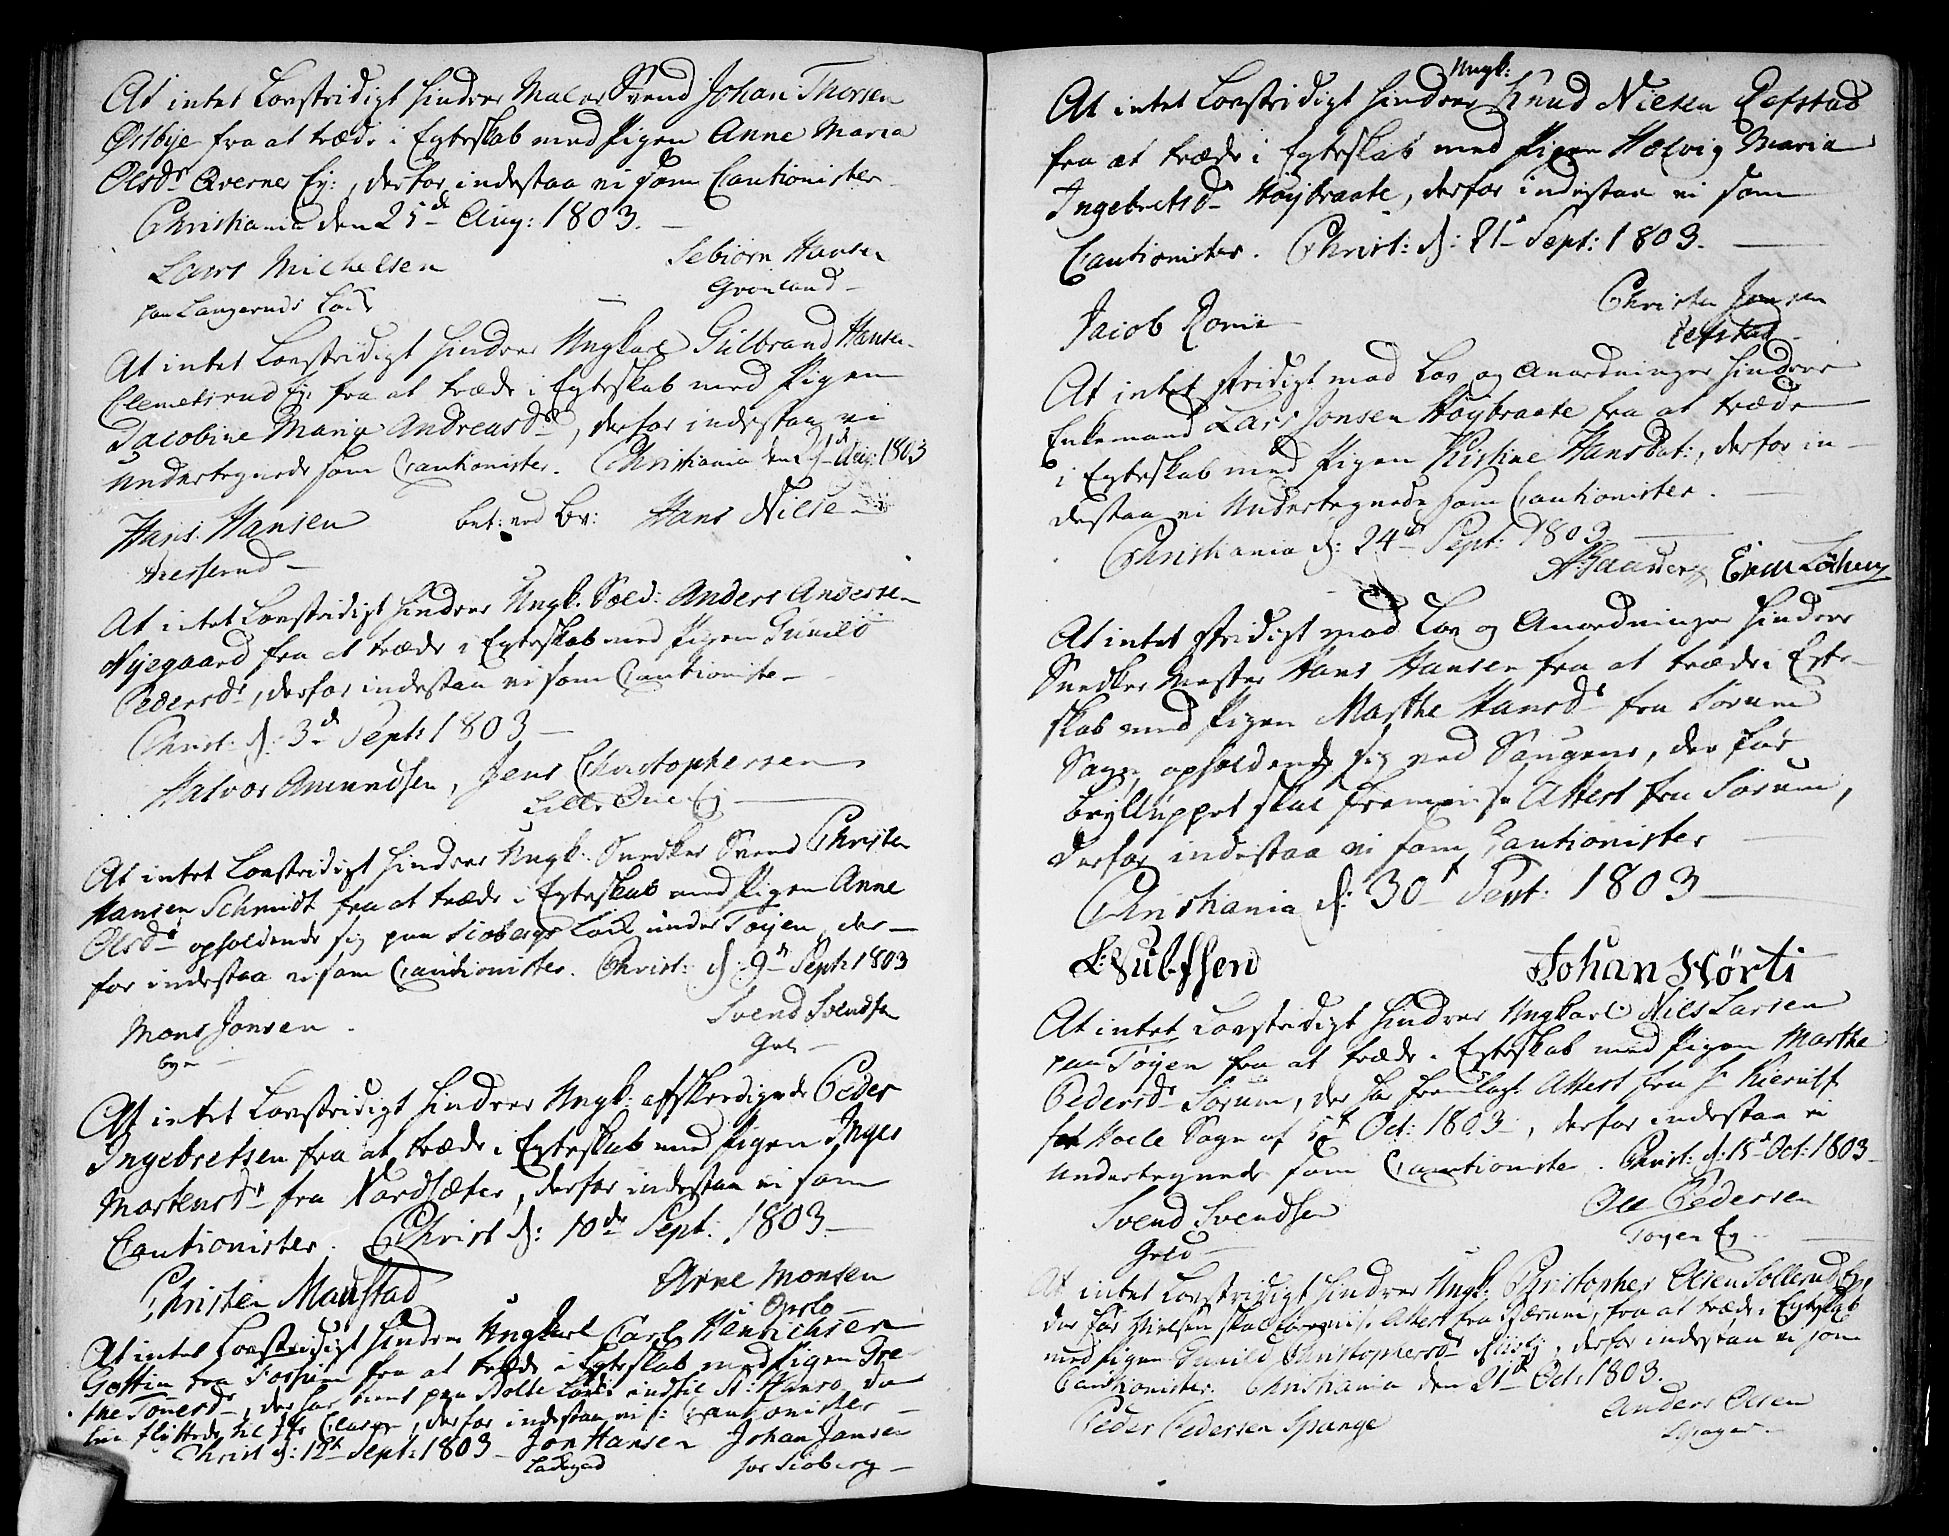 At intet Lovstridigt hindrer Maler Svend Johan Thorsen
Østbye fra at træde i Egteskab med Pigen Anne Maria
Olsdr Qverner Ej:, derfor indestaa vi som Cautionister
Christiania den 25de Aug: 1803.
Lars Michelsen Sebiørn Hansen
paa Langeruds Grønland
At intet Lovstridigt hindrer Ungkarl Gulbrand Hansen
Clemetsrud Ej: fra at træde i Egteskab med Pigen
Jacobine Maria Andreasdr, derfor indestaa vi
Undertegnede som Cautionister. Christiania den Aug: 1803
Hans Hansen bet: ved Br: Hans Nilsen
At intet Lovstridigt hindrer Ungk. Sold: Anders Andersen
Nyegaard fra at træde i Egteskab med Pigen Gunild
Pedersdr, derfor indestaa vi som Cautionister
Christ: d: 3de Sept: 1803
Halvor Amundsen, Jens Christophersen
Lille Ej
At intet Lovstridigt hindrer Ungk. Snedker Svend Christen
Hansen Schmidt fra at træde i Egteskab med Pigen Anne
Olsdr opholdende sig paa Siobergs Løck under Tøyen, der-
for indestaa vi som Cautionister. Christ: d: 9de Sept: 1803
Mons Jonsen Svend Svendsen
At intet Lovstridigt hindrer Ungk: afskedigede Peder
Ingebretsen fra at træde i Egteskab med Pigen Inger
Mortensdr fra Nordsæter, derfor indestaa vi som
Cautionister. Christ d: 10de Sept: 1803
Christen Maustad Arne Monsen
Opslo
At intet Lovstridigt hindrer Ungkarl Carl Henrichsen
Gottin fra Fossum fra at træde i Egteskab med Pigen Gre-
the Tonersdr, der har tient paa Løcke indtil St: Hans, da
hun flyttede til Clasen, derfor indestaa vi s: Cautionister
Christ d: 12te Sept: 1803 Jon Hansen Johan Jansen
Ladegad for Sioberg
Ungk:
At intet Lovstridigt hindrer Knud Nielsen Refstad
fra at træde i Egteskab med Pigen Helvig Maria
Ingebretsdr Høybraate, derfor indestaa vi som
Cautionister. Christ: d: 21 Sept: 1803.
Jacob Christen Jansen
Refstad
At intet stridigt mod Lov og Anordninger hindrer
Enkemand Lars Jonsen Høybraate fra at træde
i Egteskab med Pigen Kistine Hansdat:, derfor in-
destaa vi Undertegnede som Cautionister.
Christiania d: 24de Sept: 1803
At intet stridigt mod Lov og Anordninger hindrer
Snedker Mester Hans Hansen fra at træde i Egte-
skab med Pigen Marthe Hansdr fra Sørum
Sogn, opholdende sig ved Saugene, der før
Brylluppet skal fremvise Attest fra Sørum,
derfor indestaa vi som Cautionister
Christiania d: 30t Sept: 1803
L: Wulfsen Johan Hørti
At intet Lovstridigt hindrer Ungkarl Niels Larsen
paa Tøyen fra at træde i Egteskab med Pigen Marthe
Pedersdr Sørum, der har fremlagt Attest fra Hr Kierulf
for Hoele Sogn af 5te Oct: 1803, derfor indestaa vi
Undertegnede som Cautionister. Christ: d: 15de Oct: 1803
Svend Svendsen Ole Pedersen
Tøyen Ej
At intet Lovstridigt hindrer Ungk. Christopher Olsen Sollerud Ej,
der før Vielsen skal fremvise Attest fra Bærum, fra at træde i Egteskab
med Pigen Gunild Christophersdr, derfor indestaa vi som
Cautionister. Christiania den 21de Oct: 1803.
Peder Pedersen Spange Anders Olsen